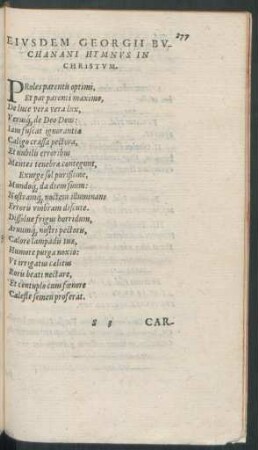 277
EIVSDEM GEORGII BV-
CHANANI HYMNVS IN
CHRISTVM.
PRoles parentis optimi,
Et par parenti maximo,
De luce vera vera lux,
Verusq́; de Deo Deus:
Iam fuscat ignorantia
Caligo crassa pectora,
Et nubilis erroribus
Mentes tenebræ contegunt,
Exurge sol purissime,
Mundoq́; da diem suum:
Nostramq́; noctem illuminans
Erroris vmbram discute.
Dissolue frigus horridum,
Aruumq́; nostri pectoris,
Calore lampadis tuæ,
Humore purga noxio:
Vt irrigatus cælitus
Roris beati nectare,
Et centuplo cum fœnore
Cæleste semen proferat.
CAR-